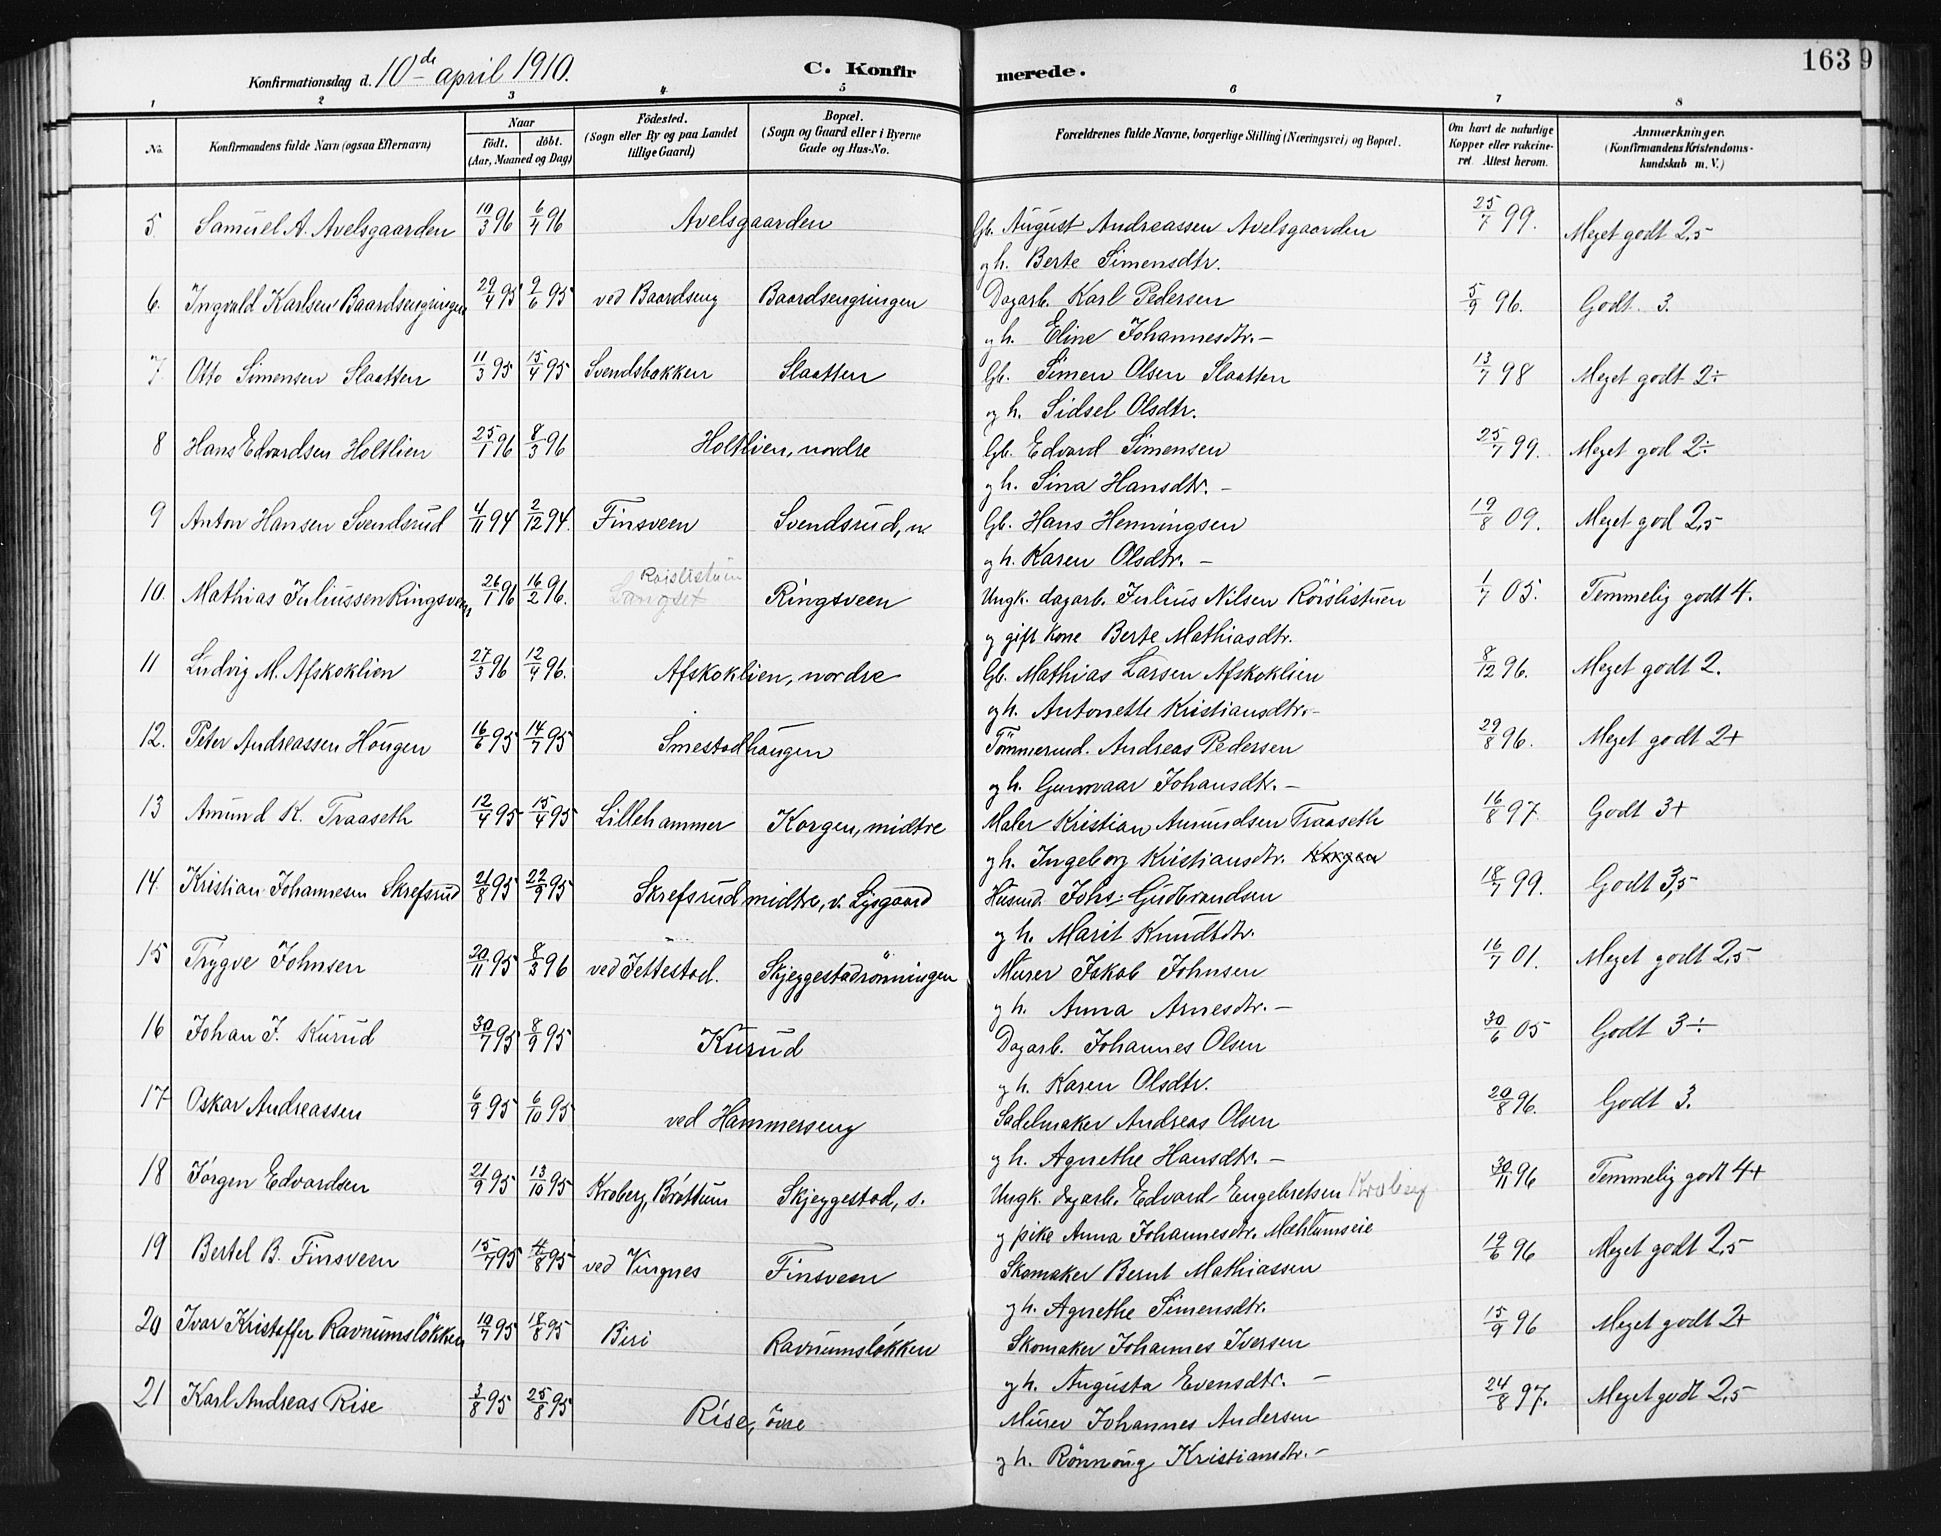 163 9
Konfirmationsdag d. 10de april 1910.
C. Konfirmerede.
1 2 3 4 5 6 7 8
No.
Konfirmandens fulde Navn (ogsaa Efternavn)
Naar
födt. döbt.
(Aar, Maaned og Dag)
Födested.
(Sogn eller By og paa Landet
tillige Gaard)
Bopæl.
(Sogn og Gaard eller i Byerne
Gade og Hus-No.
Forældrenes fulde Navne, borgerlige Stilling (Næringsvei) og Bopæl.
Om havt de naturlige
Kopper eller vakcine-
ret. Attest herom.
Anmærkninger.
(Konfirmandens Kristendoms-
kundskab m. V.)
5 Samuel A. Avelsgaarden 10/3 96 6/4 96 Avelsgaarden Gb. August Andreassen Avelsgaarden 25/7 99. Meget godt 2,5
og h. Berte Simensdtr.
6. Ingvald Karlsen Baardsengringen 29/4 95 9/6 95 ved Baardseng Baardsengringen Dagarb. Karl Pedersen 5/9 96. Godt 3.
og h. Eline Johannesdtr. -
7. Otto Simensen Slaatten 11/3 95 15/4 95 Svendsbakken Slaatten Gb. Simen Olsen Slaatten 13/7 98 Meget godt 2÷
og h. Sidsel Olsdtr.
8 Hans Edvardsen Holtlien 25/1 96 8/3 96 Holtlien, nordre Gb. Edvard Simensen 25/7 99. Meget god 2÷
og h. Sina Hansdtr. -
9 Anton Hansen Svendsrud 4/11 94 2/12 94. Finsveen Svendsrud, n. Gb. Hans Henningsen 19/8 09. Meget god 2,5
og h. Karen Olsdtr. -
10. Mathias Juliussen Ringsveen 26/1 96 16/2 96. Langset Roislistuen Ringsveen Ungk. dagarb. Julius Nilsen Röislistuen 1/7 05. Temmelig godt 4.
og gift Kone Berte Mathiasdtr.
11 Ludvig M. Afskoklien 27/3 96 12/4 96. Afskoklien, nordre Gb. Mathias Larsen Afskoklien 8/12 96. Meget godt 2.
og h. Antonette Kristiansdtr. -
12. Peter Andreassen Haugen 16/6 95 14/7 95 Smestadhaugen Tömmermd. Andreas Pedersen 29/8 96. Meget godt 2+
og h. Gunvaar Johansdtr. -
13 Amund K. Traaseth 12/4 95 15/4 95 Lillehammer Korgen, midtre Maler Kristian Amundsen Traaseth 16/8 97. Godt 3+
og h. Ingeborg Kristiansdtr. Korgen
14. Kristian Johannesen Skrefsrud 21/8 95 22/9 95 Skrefsrud midtre, v. Lysgaard Husmd. Johs. Gudbrandsen 18/7 99. Godt 3,5
og h. Marit Knudtdtr.
15 Trygve Johnsen 20/11 95 8/3 96 ved Jettestad. Skjeggestadrönningen Murer Jakob Johnsen 16/7 01. Meget godt 2,5
og h. Anna Arnesdtr. -
16 Johan J. Kurud 30/7 95 8/9 95 Kurud Dagarb. Johannes Olsen 30/6 05 Godt 3÷
og h. Karen Olsdtr.
17 Oskar Andreassen 6/9 95 6/10 95 ved Hammerseng Sadelmaker Andreas Olsen 20/8 96. Godt 3.
og h. Agnethe Hansdtr. -
18 Jörgen Edvardsen 21/9 95 13/10 95 Kroberg, Bröttum Skjeggestad, s. Ungk. dagarb. Edvard Engebretsen 30/11 96 Temmelig godt 4+
og pike Anna Johannesdtr. Mæhlumseie
19 Bertel B. Finsveen 15/7 95 4/8 95 ved Vingnes Finsveen Skomaker Bernt Mathiassen 19/6 96 Meget godt 2,5
og h. Agnethe Simensdtr.
20 Ivar Kristoffer Ravnumslökken 10/7 95 18/8 95 Biri Ravnumslökken Skomaker Johannes Iversen 15/9 96 Meget godt 2+
og h. Augusta Evensdtr. -
21 Karl Andreas Rise 3/8 95 25/8 95 Rise, övre Murer Johannes Andersen 24/8 97. Meget godt 2,5
og h. Rönnaug Kristiansdtr. -